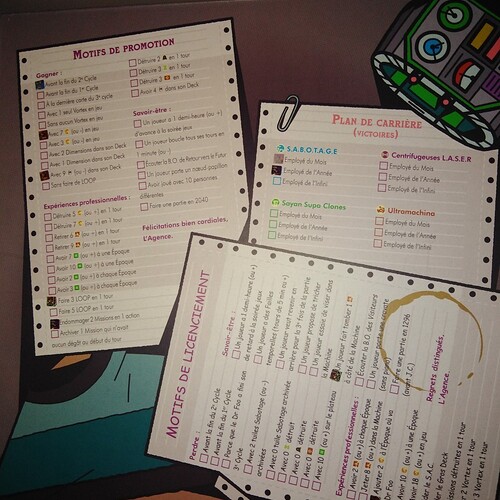 MOTIFS DE PROMOTION
Gagner :
Avant la fin du 2e Cycle
Avant la fin du 1er Cycle
A la dernière carte du 3e cycle
Avec 1 seul Vortex en jeu
Sans aucun Vortex en jeu
Avec 2 (ou -) en jeu
Avec 3 (ou -) en jeu
Avec 2 Dimensions dans son Deck
Avec 1 Dimension dans son Deck
Avec 9 (ou -) dans son Deck
Sans faire de LOOP
Expériences professionnelles :
Détruire 5 (ou +) en 1 tour
Détruire 7 (ou +) en 1 tour
Retirer 6 (ou +) en 1 tour
Retirer 9 (ou +) en 1 tour
Avoir 5 (ou +) à une Époque
Avoir 10 (ou +) à une Époque
Avoir 2 (ou +) à chaque Époque
Avoir 3 (ou +) à chaque Époque
Faire 3 LOOP en 1 tour
Faire 5 LOOP en 1 tour
Endommager 2 Missions en 1 action
Archiver 1 Mission qui n'avait
aucun dégât au début du tour
Détruire 2 en 1 tour
Détruire 3 en 1 tour
Détruire 3 en 1 tour
Avoir 4 dans son Deck
Savoir-être :
Un joueur a 1 demi-heure (ou +)
d'avance à la soirée jeux
Un joueur boucle tous ses tours en
1 minute (ou -)
Écouter la B.O. de Retour vers le Futur
Un joueur porte un nœud papillon
Avoir joué avec 10 personnes
différentes
Faire une partie en 2040
Félicitations bien cordiales,
L'Agence.
PLAN DE CARRIÈRE
(VICTOIRES)
S.A.B.O.T.A.G.E
Employé du Mois
Employé de l'Année
Employé de l'Infini
Centrifugeuses L.A.S.E.R
Employé du Mois
Employé de l'Année
Employé de l'Infini
Sayan Supa Clones
Employé du Mois
Employé de l'Année
Employé de l'Infini
Ultramachina
Employé du Mois
Employé de l'Année
Employé de l'Infini
MOTIFS DE LICENCIEMENT
Perdre :
Avant la fin du 2e Cycle
Avant la fin du 1er Cycle
Parce que le Dr Foo a fini son
3e Cycle
Avec 2 tuiles Sabotage (ou -)
archivées
Avec 0 tuile Sabotage archivée
Avec 0 détruit
Avec 0 détruit
Avec 0 détruite
Avec 10 (ou +) sur le plateau
Expériences professionnelles :
Avoir 2 (ou +) à chaque Époque
Jeter 8 (ou +) dans la Machine
Ajouter 2 à l'Époque où va
Dr Foo
Avoir 10 (ou +) à une Époque
Avoir 18 (ou +) en jeu
le S.A.C.
le Gros Deck
détruites en 1 tour
2 Vortex en 1 tour
3 Vortex en 1 tour
Savoir-être :
Un joueur a 1 demi-heure (ou +)
de retard à la soirée jeux
Un joueur a des Failles
Temporelles (tours de 5 min ou +)
Un joueur veut revenir en
arrière pour la 3e fois de la partie
Un joueur propose de tricher
Un joueur essaie de viser dans
la Machine
Un joueur fait tomber 1
à côté de la Machine
Écouter la B.O. des Visiteurs
Un joueur porte une
Faire une partie en 1296
(avant J.C.)
Regrets distingués,
L'Agence.